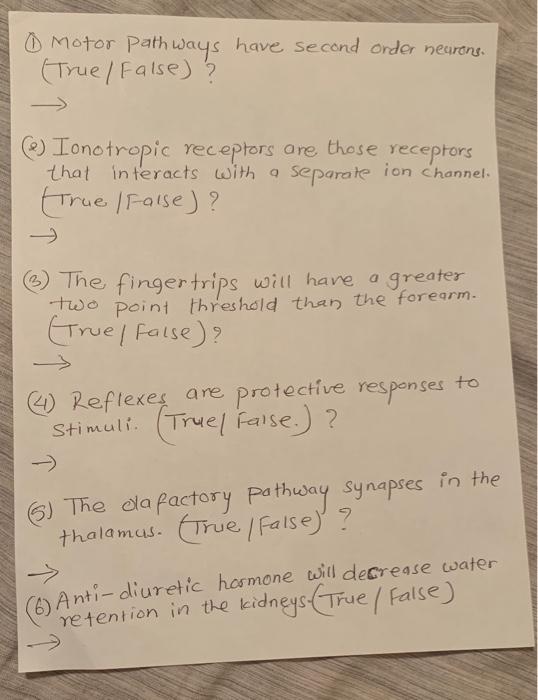 ① Motor Pathways have second order neurons.
(True / False) ?
→
(2) Ionotropic receptors are those receptors
that interacts with a separate ion channel.
(True / False) ?
→
(3) The fingertrips will have a greater
two point threshold than the forearm.
(True / False) ?
→
(4) Reflexes are protective responses to
Stimuli. (True / False.) ?
→
(5) The olafactory pathway synapses in the
thalamus. (True / False) ?
→
(6) Anti-diuretic hormone will decrease water
retention in the kidneys. (True / False)
→